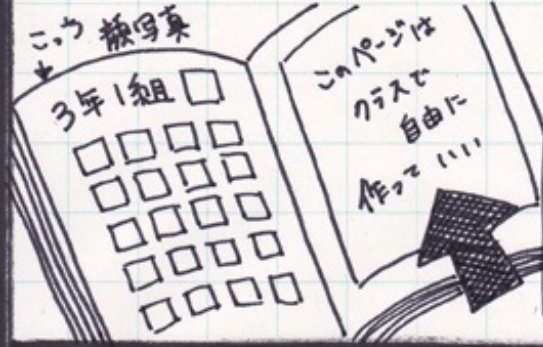 こっち 顔写真
3年1組
このページは
クラスで
自由に
作って いい